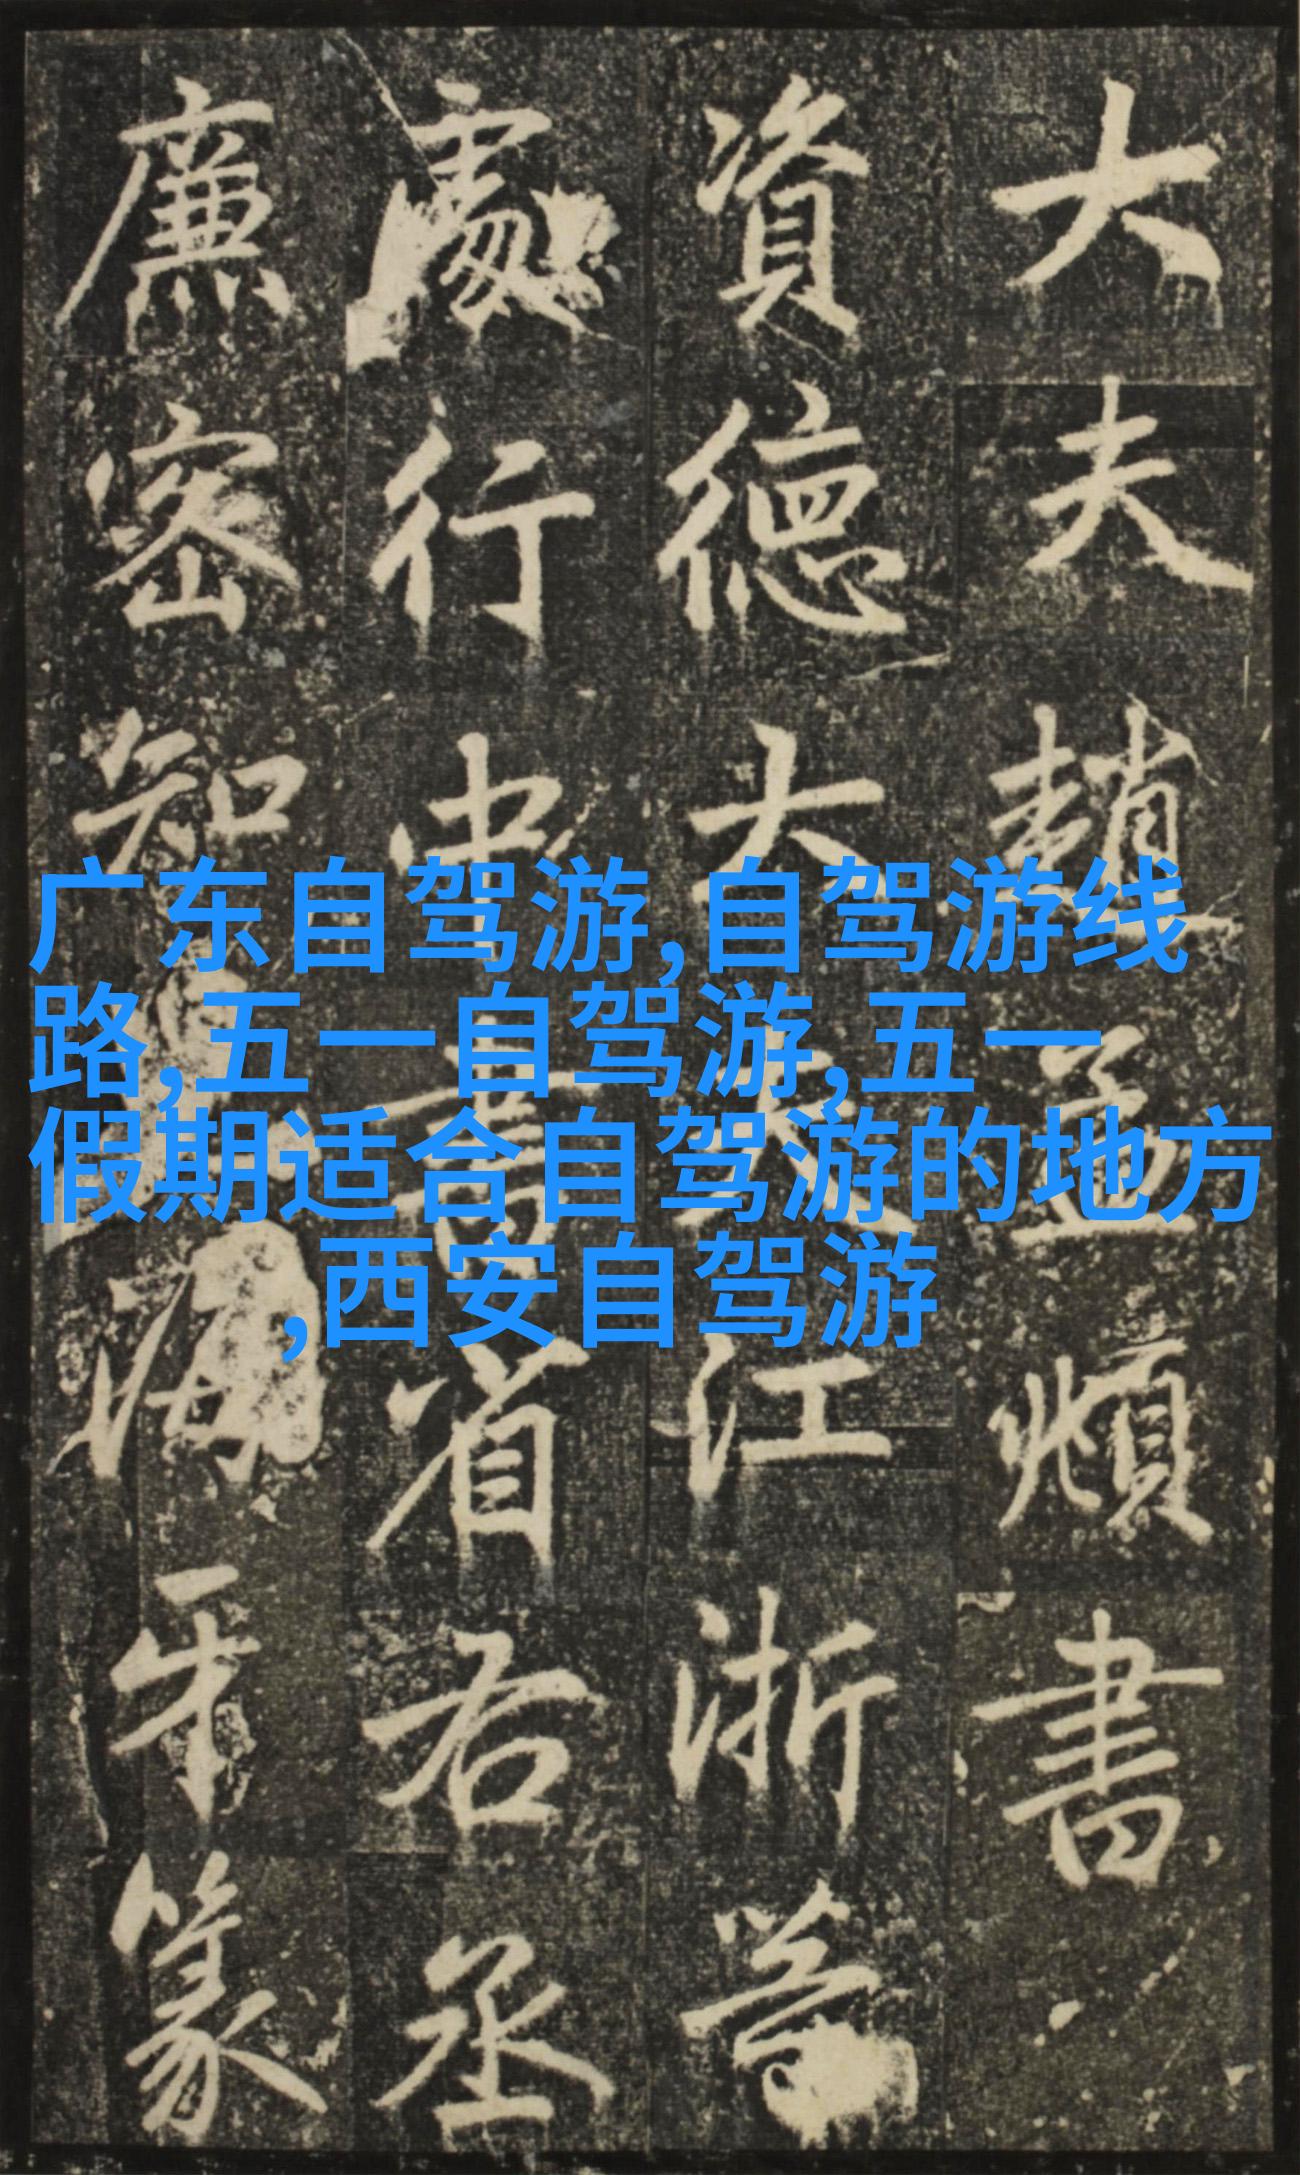 大夫趙孟頫書
資德大夫江浙等
處行中書省右丞
廉密知海牙篆
广东自驾游,自驾游线
路,五一自驾游,五一
假期适合自驾游的地方
,西安自驾游